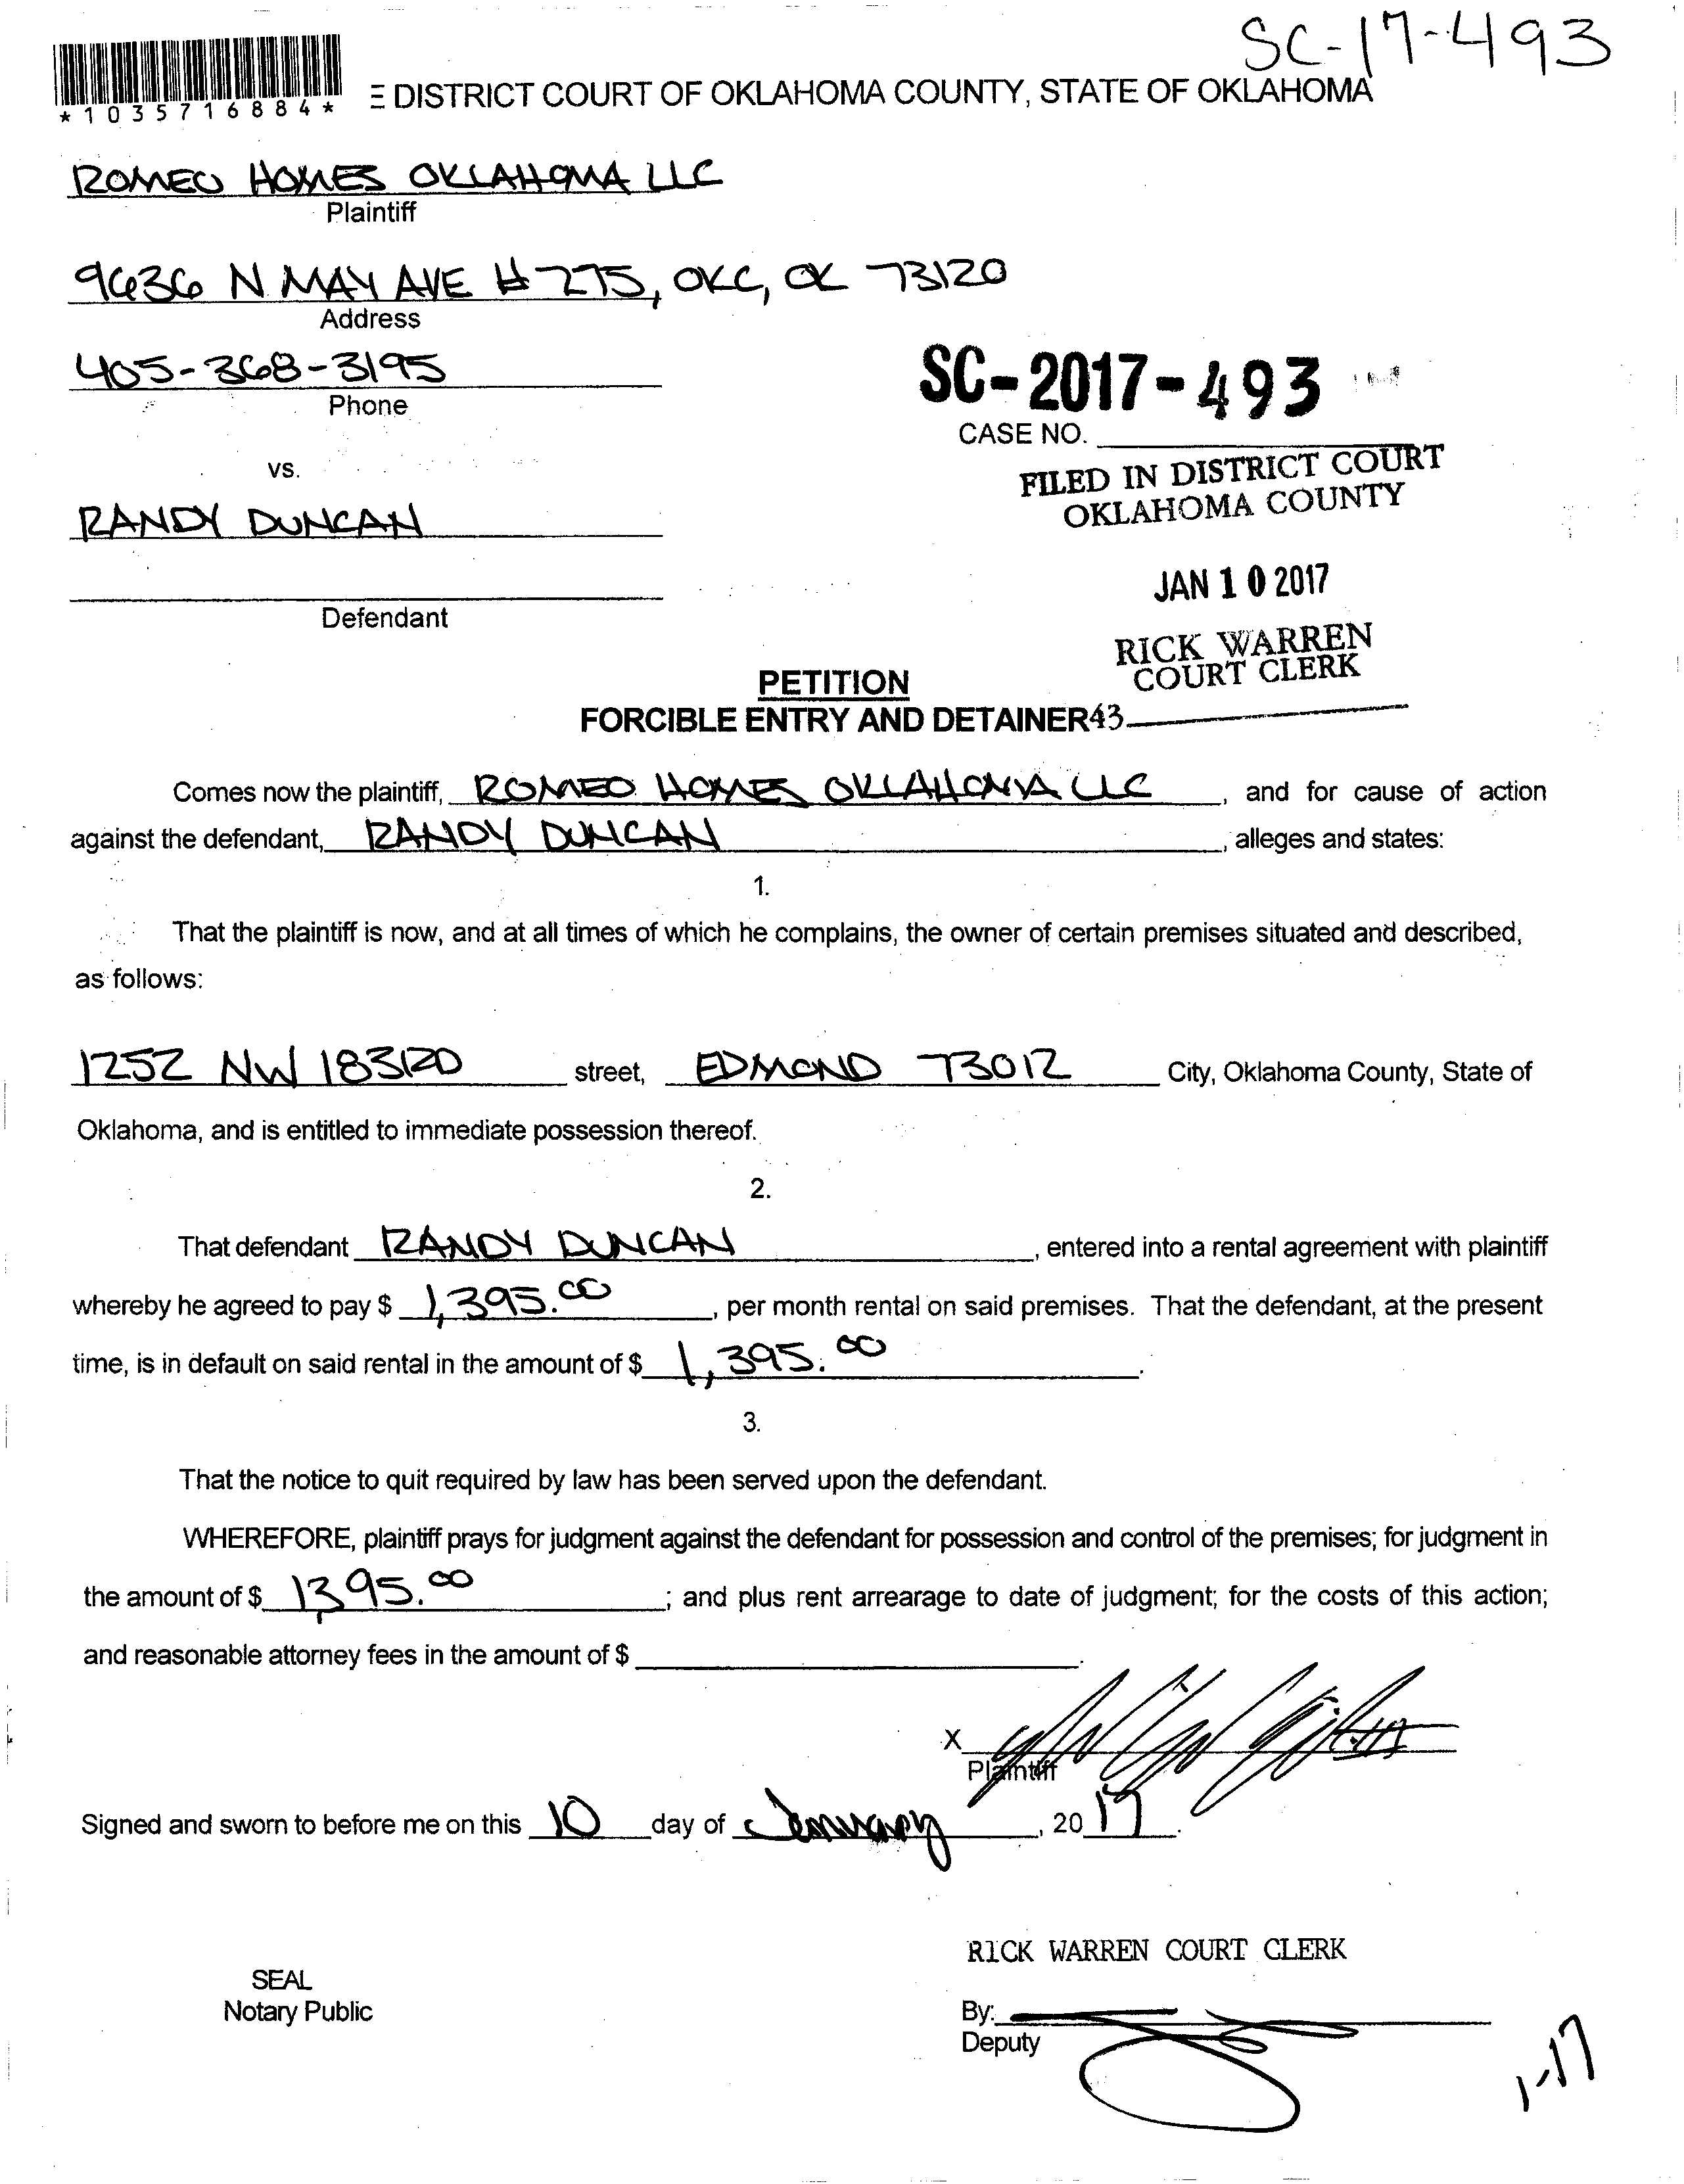 SC-17-493
*1035716884*
E DISTRICT COURT OF OKLAHOMA COUNTY, STATE OF OKLAHOMA
ROMEO HOMES OKLAHOMA LLC
Plaintiff
9636 N MAY AVE #275, OKC, OK 73120
Address
405-368-3195
Phone
SC-2017-493
CASE NO.
vs.
FILED IN DISTRICT COURT
OKLAHOMA COUNTY
RANDY DUNCAN
JAN 10 2017
Defendant
RICK WARREN
COURT CLERK
PETITION
FORCIBLE ENTRY AND DETAINER
43
Comes now the plaintiff, ROMEO HOMES OKLAHOMA LLC, and for cause of action
against the defendant, RANDY DUNCAN, alleges and states:
1.
That the plaintiff is now, and at all times of which he complains, the owner of certain premises situated and described,
as follows:
1252 NW 183RD street, EDMOND 73012 City, Oklahoma County, State of
Oklahoma, and is entitled to immediate possession thereof.
2.
That defendant RANDY DUNCAN, entered into a rental agreement with plaintiff
whereby he agreed to pay $ 1,395.00, per month rental on said premises. That the defendant, at the present
time, is in default on said rental in the amount of $ 1,395.00.
3.
That the notice to quit required by law has been served upon the defendant.
WHEREFORE, plaintiff prays for judgment against the defendant for possession and control of the premises; for judgment in
the amount of $ 1,395.00; and plus rent arrearage to date of judgment; for the costs of this action;
and reasonable attorney fees in the amount of $
X
Plaintiff
Signed and sworn to before me on this 10 day of January, 2017.
RICK WARREN COURT CLERK
SEAL
Notary Public
By:
Deputy
1-17